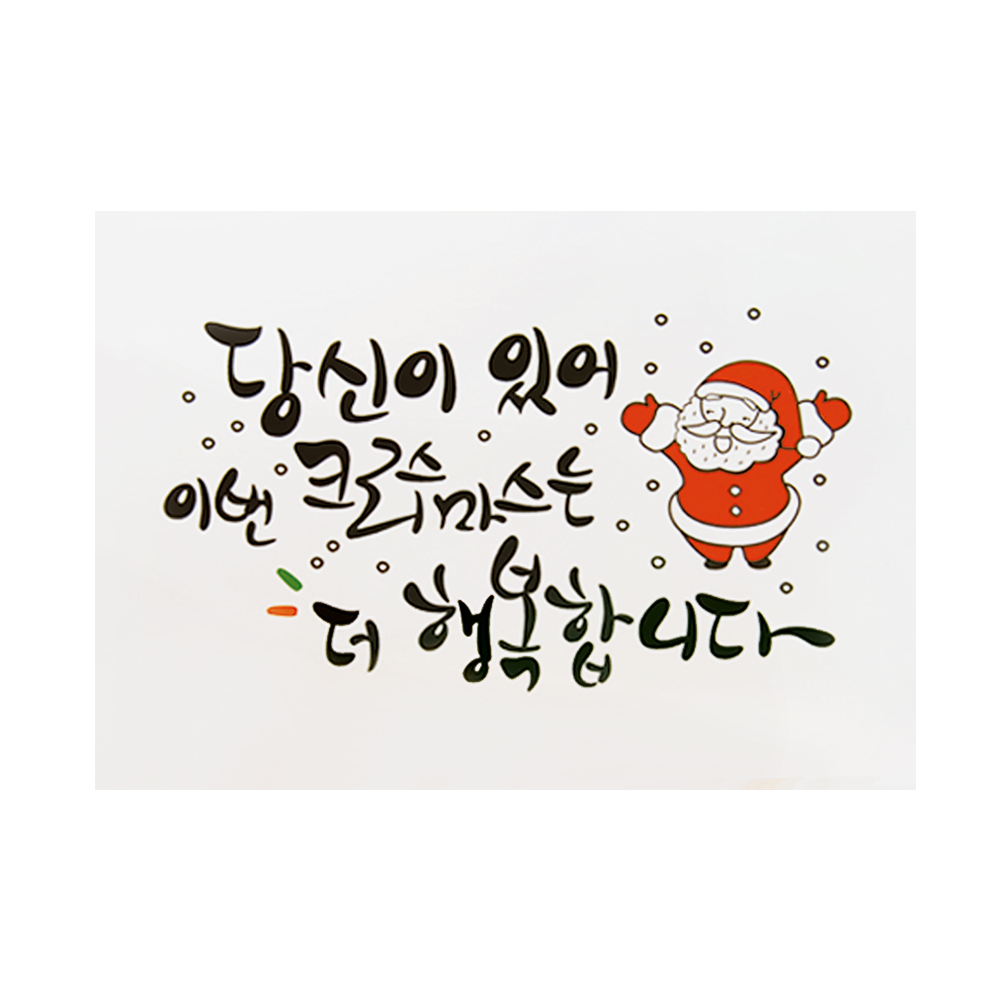 당신이 있어
이번 크리스마스는
더 행복합니다